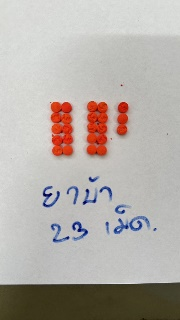 ยาบ้า
23 เม็ด.